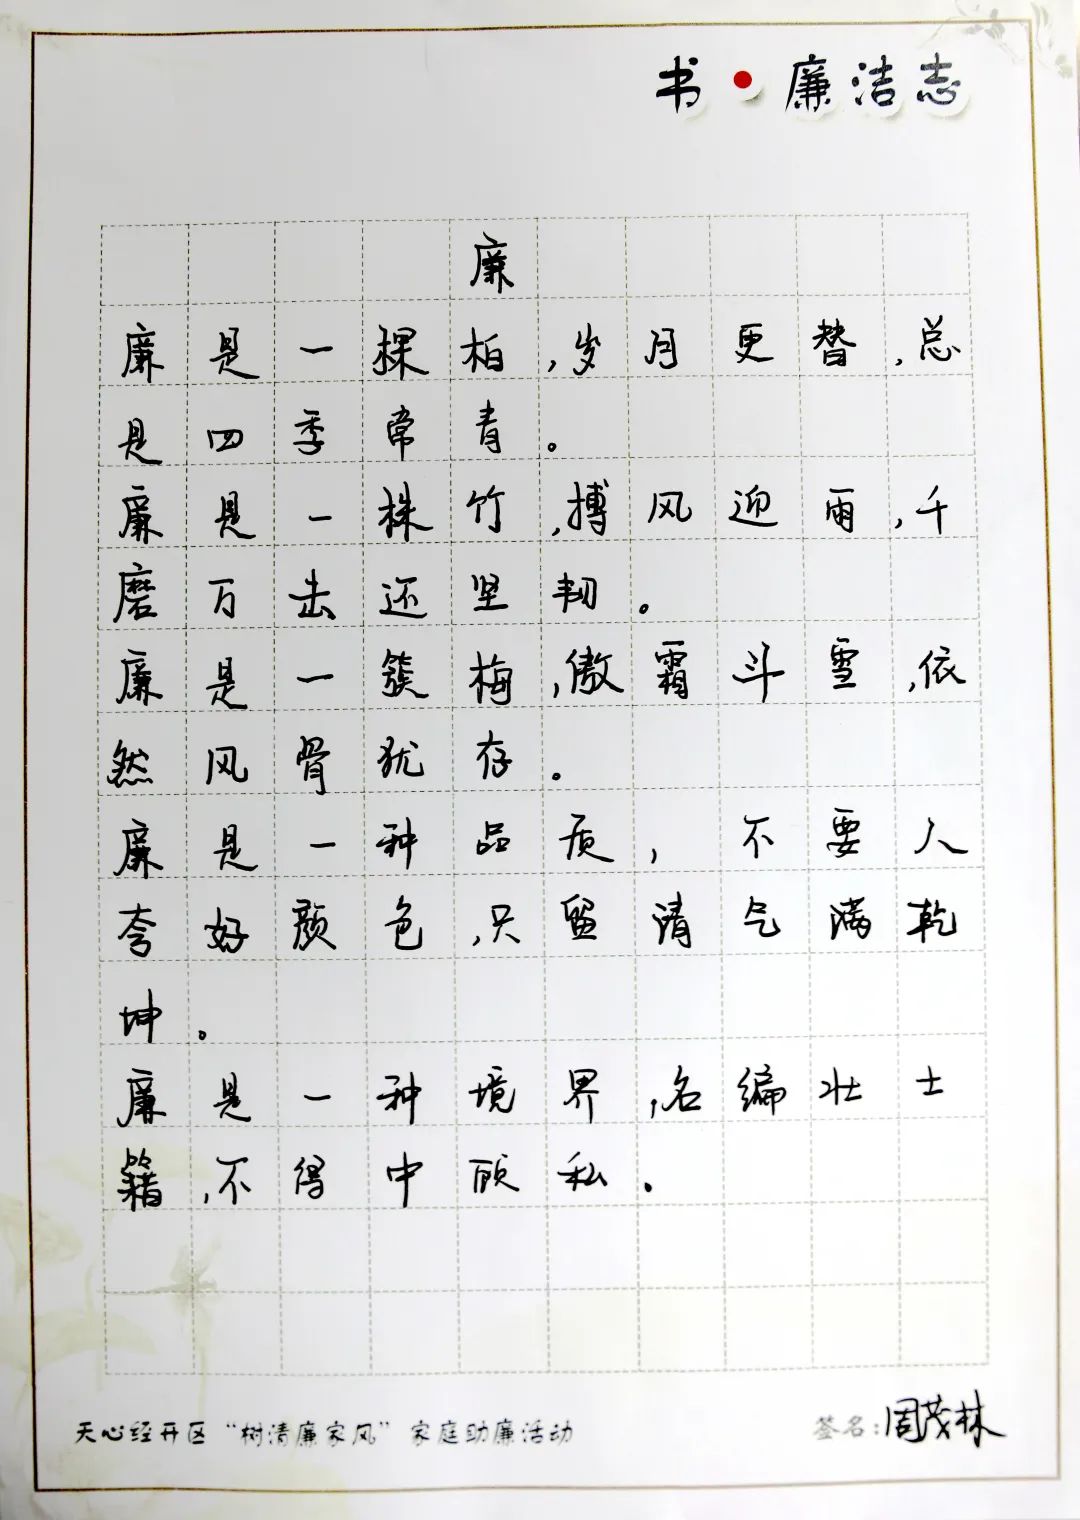 书·廉洁志
廉
廉是一棵柏,岁月更替,总
是四季常青。
廉是一株竹,搏风迎雨,千
磨万击还坚韧。
廉是一簇梅,傲霜斗雪,依
然风骨犹存。
廉是一种品质,不要人
夸好颜色,只留清气满乾
坤。
廉是一种境界,名编壮士
籍,不得中顾私。
天心经开区“树清廉家风”家庭助廉活动
签名:周茂林